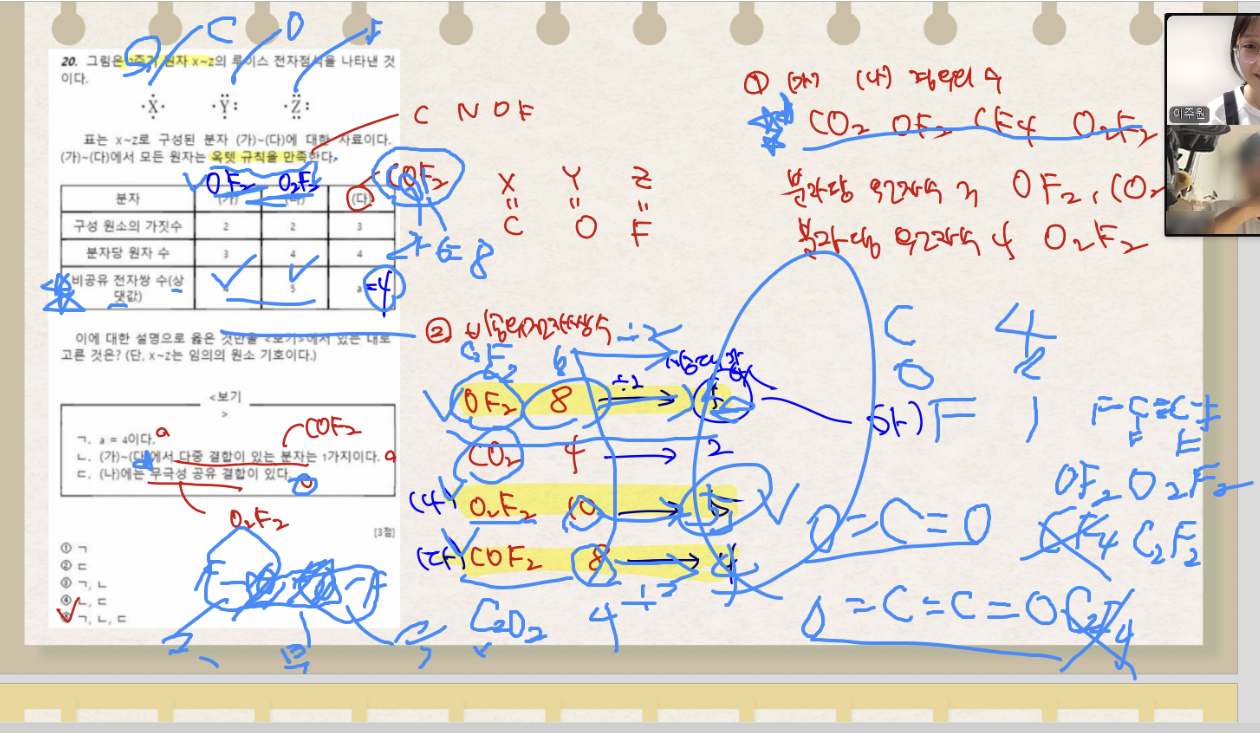 C O F
20. 그림은 2주기 원자 X~Z의 루이스 전자점식을 나타낸 것
이다.
·X· ·Y: ·Z:
표는 X~Z로 구성된 분자 (가)~(다)에 대한 자료이다.
(가)~(다)에서 모든 원자는 옥텟 규칙을 만족한다.
OF2 O2F2 COF2
분자 (가) (다)
구성 원소의 가짓수 2 2 3
분자당 원자 수 3 4 4
비공유 전자쌍 수(상
댓값) 4 5 a =4
이에 대한 설명으로 옳은 것만을 <보기>에서 있는 대로
고른 것은? (단, X~Z는 임의의 원소 기호이다.)
<보기
>
ㄱ. a = 4이다. a
COF2
ㄴ. (가)~(다)에서 다중 결합이 있는 분자는 1가지이다.
ㄷ. (나)에는 무극성 공유 결합이 있다.
O2F2
[3점]
① ㄱ
② ㄷ
③ ㄱ, ㄴ
④ ㄴ, ㄷ
ㄱ, ㄴ, ㄷ
C N O F
X Y Z
C O F
8
①
CO2 OF2 CF4 O2F2
분자당 원자수 3 OF2, CO2
분자당 원자수 4 O2F2
②
÷2
OF2 8 ÷2
CO2 4 2
O2F2 10 5
(다) COF2 8 4
÷2
C2O2 4
C 4
O 2
F 1
OF2 O2F2
CF4 C2F2
O=C=O
O=C=C=O C2F4
이주원